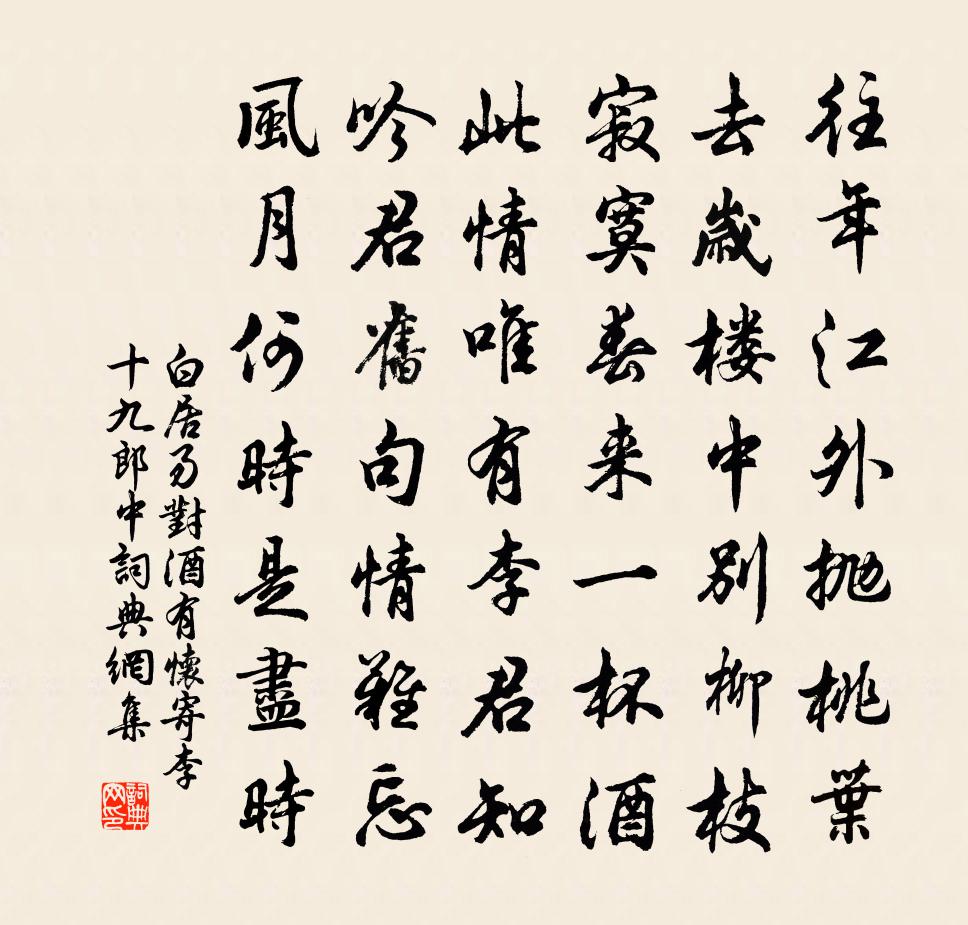 往年江外抛桃葉
去歲楼中別柳枝
寂寞春来一杯酒
此情唯有李君知
吟君舊句情難忘
風月何時是盡時
白居易對酒有懷寄李
十九郎中詞典網集
詞典网印